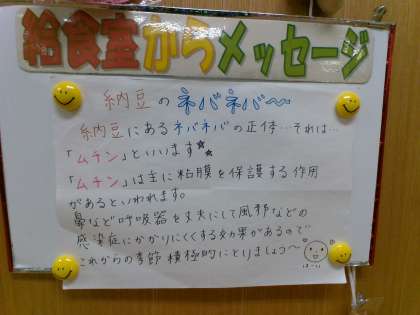 給食室からメッセージ
納豆のネバネバ～
納豆にあるネバネバの正体…それは…
「ムチン」といいます★
「ムチン」は主に粘膜を保護する作用
があるといわれます。
鼻など呼吸器を丈夫にして風邪などの
感染症にかかりにくくする効果があるので
これからの季節積極的にとりましょう～
はーい